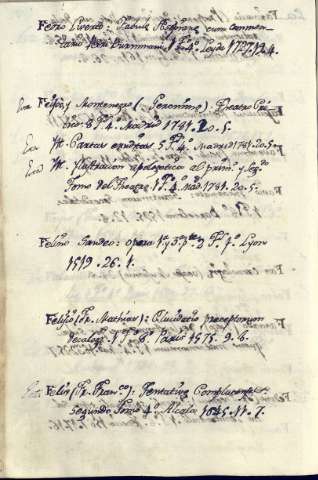 Fedro Liverto: Fabulas Phedri cum commen-
tario Petri Burmmani 1 tº 4º Leyde 1727.12.4.
Feijoo y Montenegro (Geronimo). Theatro Cri
tico 8 Tº 4º Madrid 1781. 20. 5.
Yt. Cartas eruditas 5 Tº 4º Madrid 1781. 20. 5.
Yt. Ylustracion apologetica al primº y segdo
Tomo del Theatro 1 Tº 4º Mad. 1781. 20. 5.
Felino Sandeo: opera 1ª y 3ª pte 2 Tº fº Lyon
1519. 26. 1.
Felisio (Fr. Mathias): Elucidatio preceptorum
Decalogi 1 Tº 8º Paris 1575. 9. 6.
Felix (Fr. Franco): Tentativa Complutenses
segundo Tomo 4º Alcala 1645. 11. 7.